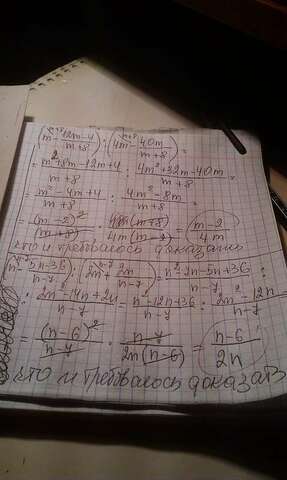 (m - 12m-4/m+8) : (4m - 40m/m+8) =
= m²+8m-12m+4/m+8 : 4m²+32m-40m/m+8 =
m²-4m+4/m+8 : 4m²-8m/m+8
= (m-2)²/(m+8) · (m+8)/4m(m-2) = m-2/4m
что и требовалось доказать
(n - 5n-36/n-7) : (2n + 2n/n-7) = n²-7n-5n+36/n-7 :
: 2n²-14n+2n/n-7 = n²-12n+36/n-7 : 2n²-12n/n-7
= (n-6)²/n-7 · n-7/2n(n-6) = n-6/2n
что и требовалось доказать